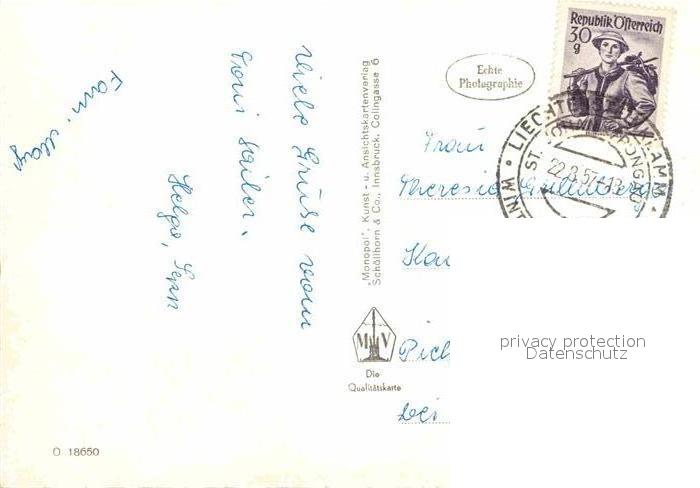 Viele Grüße vom
Toni Sailer.
Helga, Sepp
Fam. Mayr
O 18650
„Monopol", Kunst- u. Ansichtskartenverlag
Schöllhorn & Co., Innsbruck, Colingasse 6
M V
Die
Qualitätskarte
Echte
Photographie
Republik Österreich
30
g
LIECHTENSTEINKLAMM
ST. JOHANN I. PONGAU
22.8.57-13
Frau
Theresia
Kau
Pich
bei
privacy protection
Datenschutz